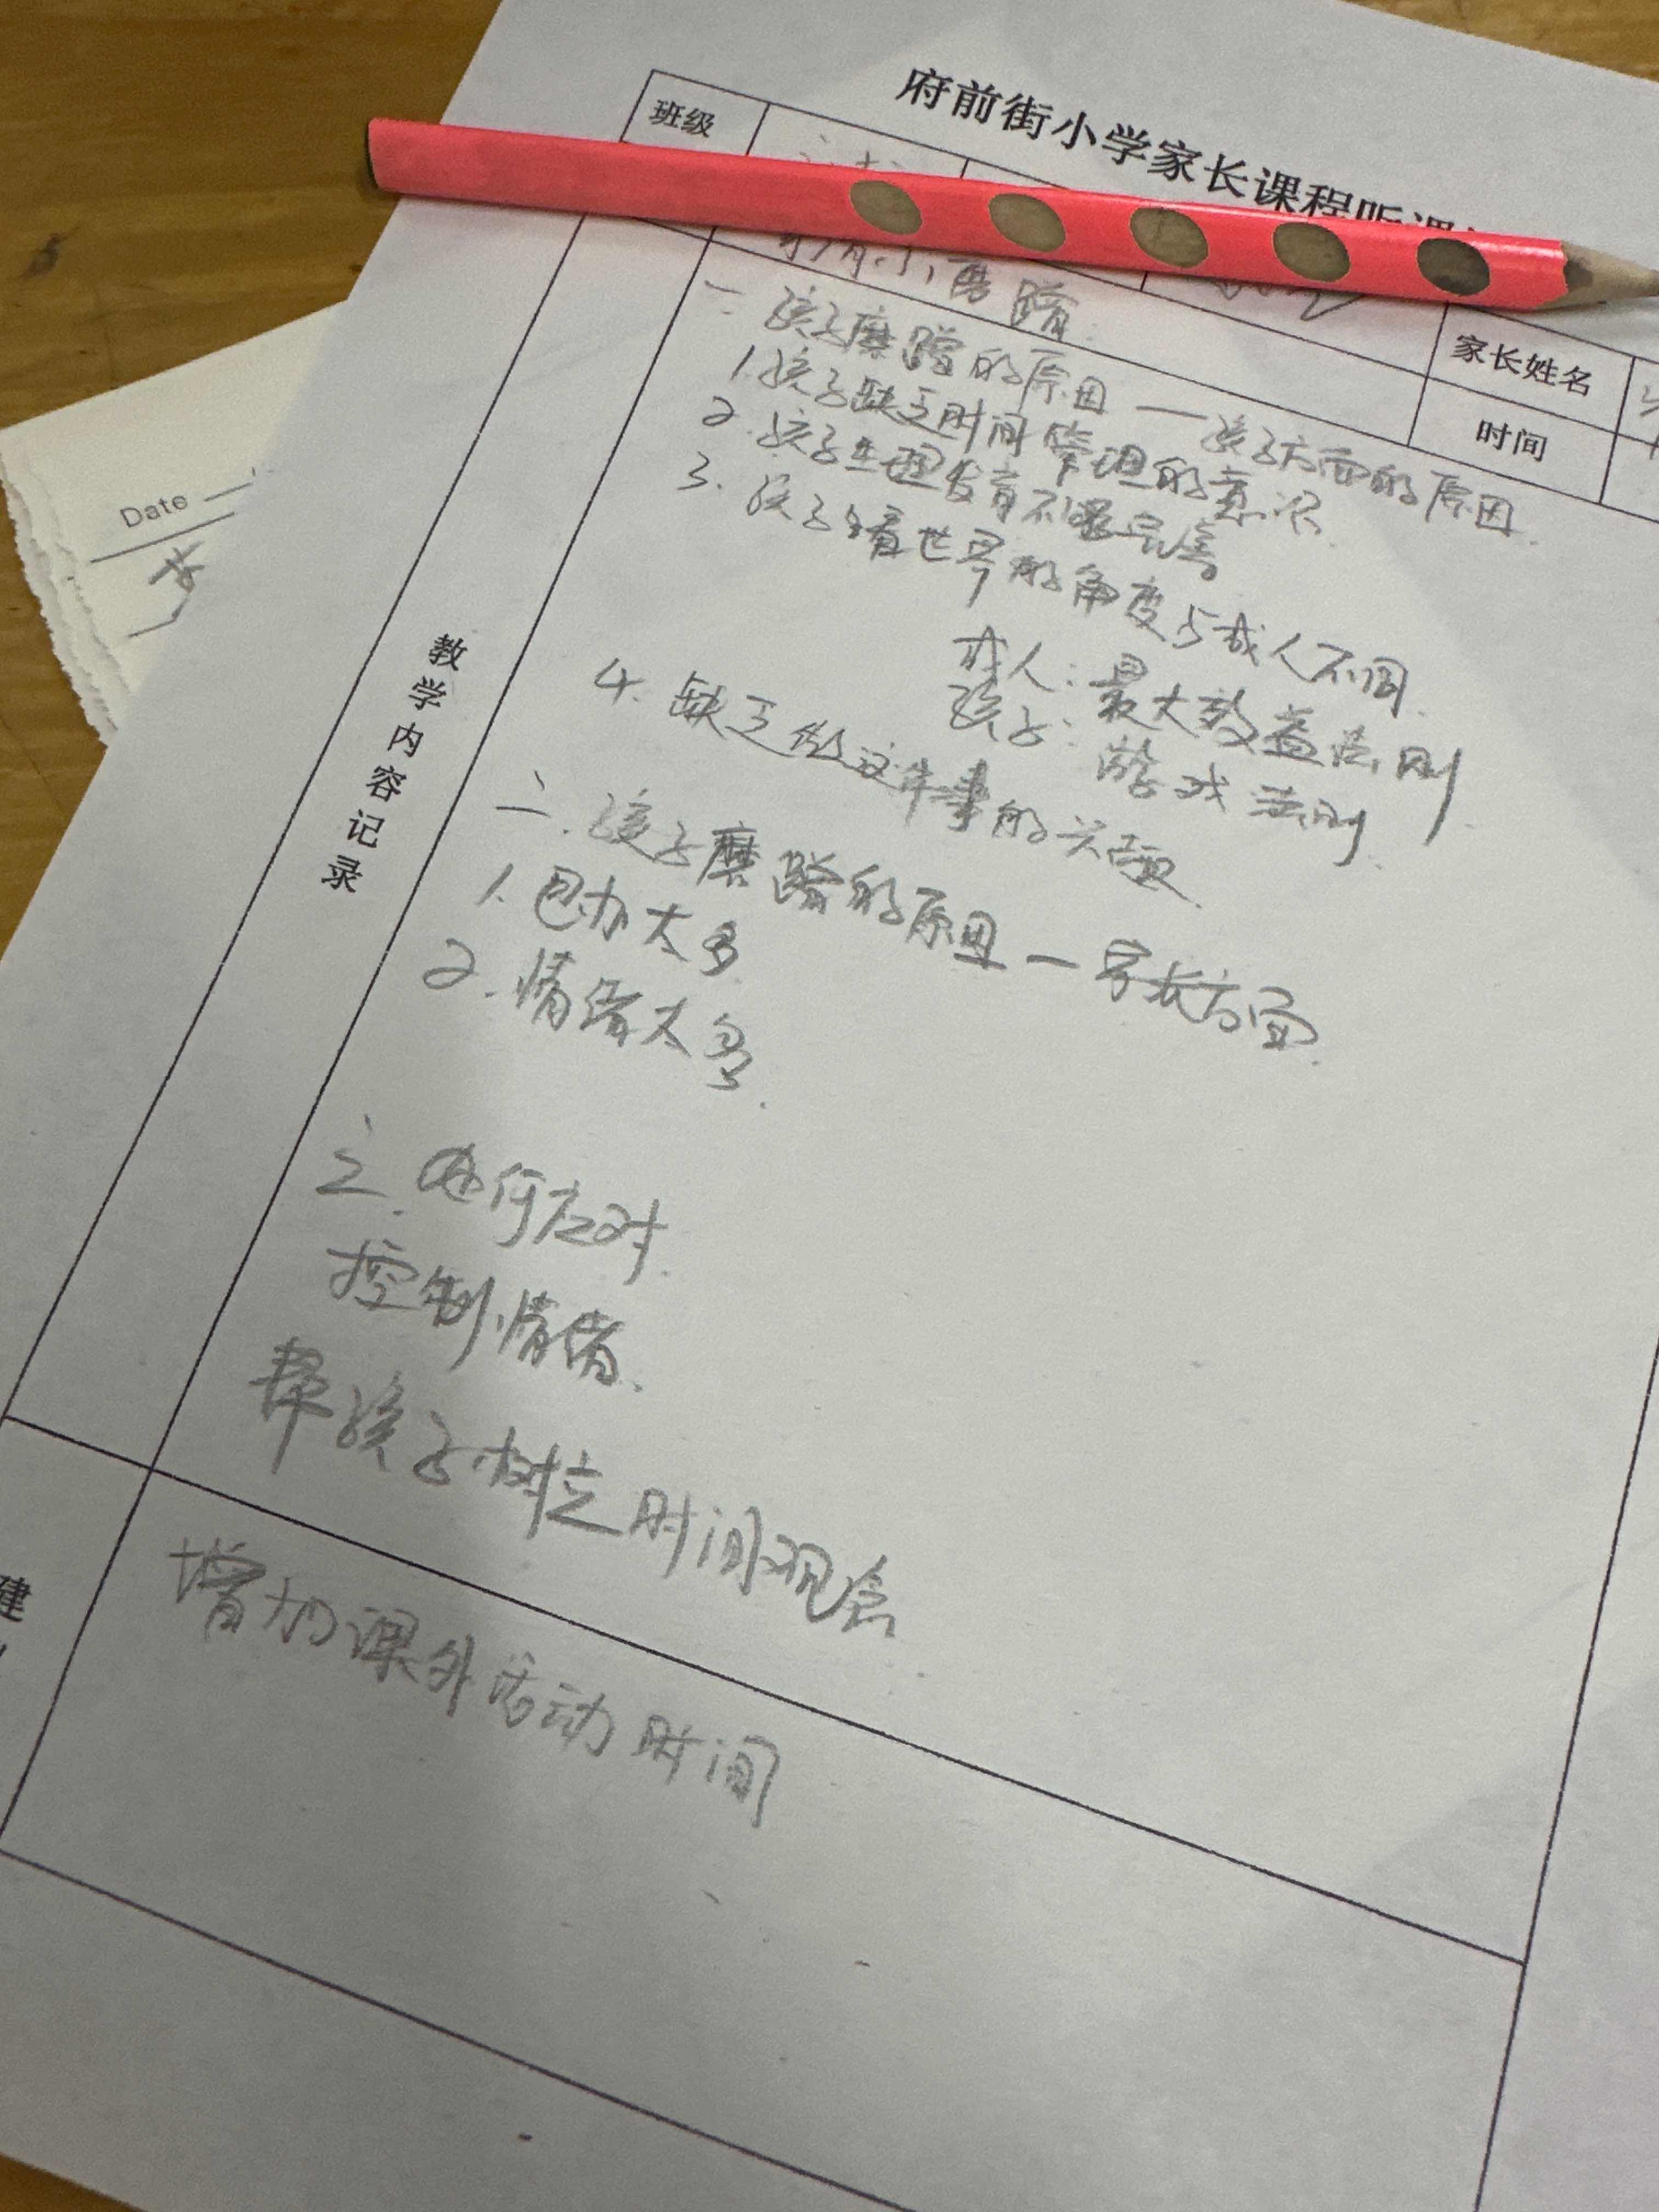 府前街小学家长课程听课
班级
家长姓名
时间
小磨蹭
一、孩子磨蹭的原因 — 孩子方面的原因.
1.孩子缺乏时间管理的意识.
2.孩子生理发育不完善
3.孩子看世界的角度与成人不同.
成人:最大效益法则.
孩子:游戏法则.
4.缺乏做这件事的兴趣.
二.孩子磨蹭的原因 — 家长方面.
1.包办太多
2.情绪太多.
三.如何应对.
控制情绪.
帮孩子树立时间观念.
增加课外活动时间
教学内容记录
建
Date